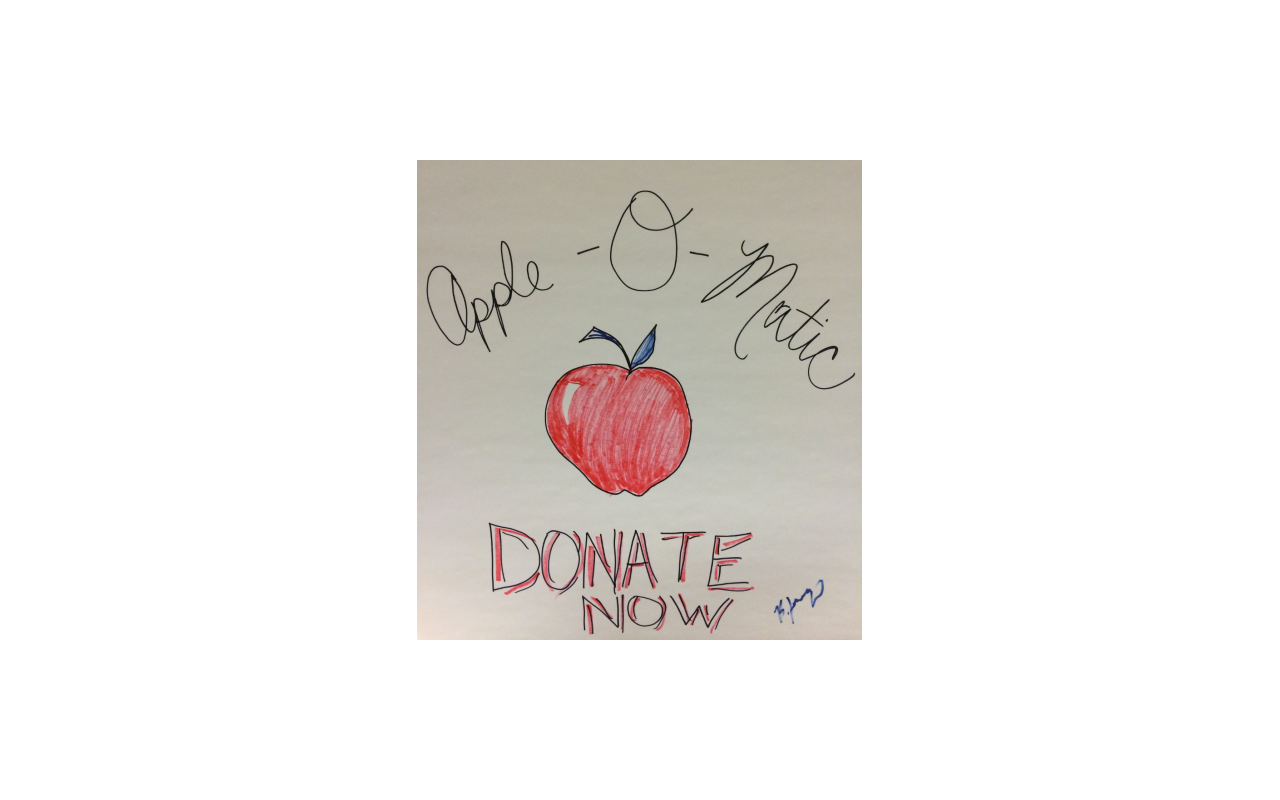 Apple - O - Matic
DONATE
NOW